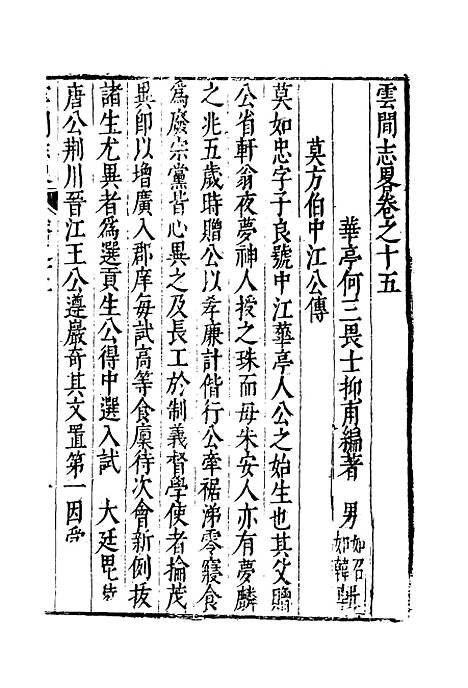 雲間志畧卷之十五
華亭何三畏士抑甫編著 男
莫方伯中江公傳
莫如忠字子良號中江華亭人公之始生也其父贈
公省軒翁夜夢神人授之珠而母朱安人亦有夢麟
之兆五歲時贈公以孝廉計偕行公牽裾涕零寢食
爲廢宗黨皆心異之及長工於制義督學使者掄茂
異卽以增廣入郡庠每試高等食廩待次會新例拔
諸生尤異者爲選貢生公得中選入試 大廷毘陵
唐公荆川晉江王公遵巖奇其文置第一因受